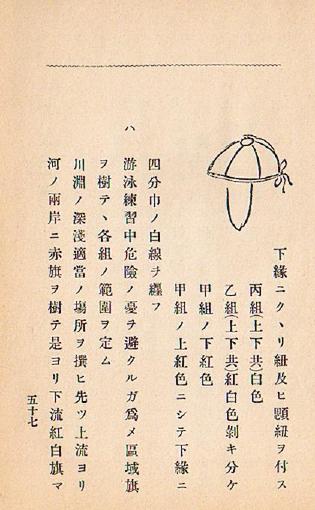 下緣ニクヽリ紐及ヒ頤紐ヲ付ス
丙組(上下共)白色
乙組(上下共)紅白色剝キ分ケ
甲組ノ下紅色
甲組ノ上紅色ニシテ下緣ニ
四分巾ノ白線ヲ纒フ
ハ 游泳練習中危險ノ憂ヲ避クルガ爲メ區域旗
ヲ樹テヽ各組ノ範圍ヲ定ム
川淵ノ深淺適當ノ場所ヲ撰ヒ先ツ上流ヨリ
河ノ兩岸ニ赤旗ヲ樹テ是ヨリ下流紅白旗マ
五十七